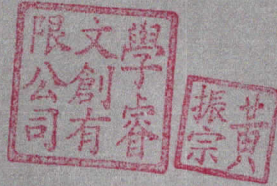 學睿
文創有
限公司
黃
振宗